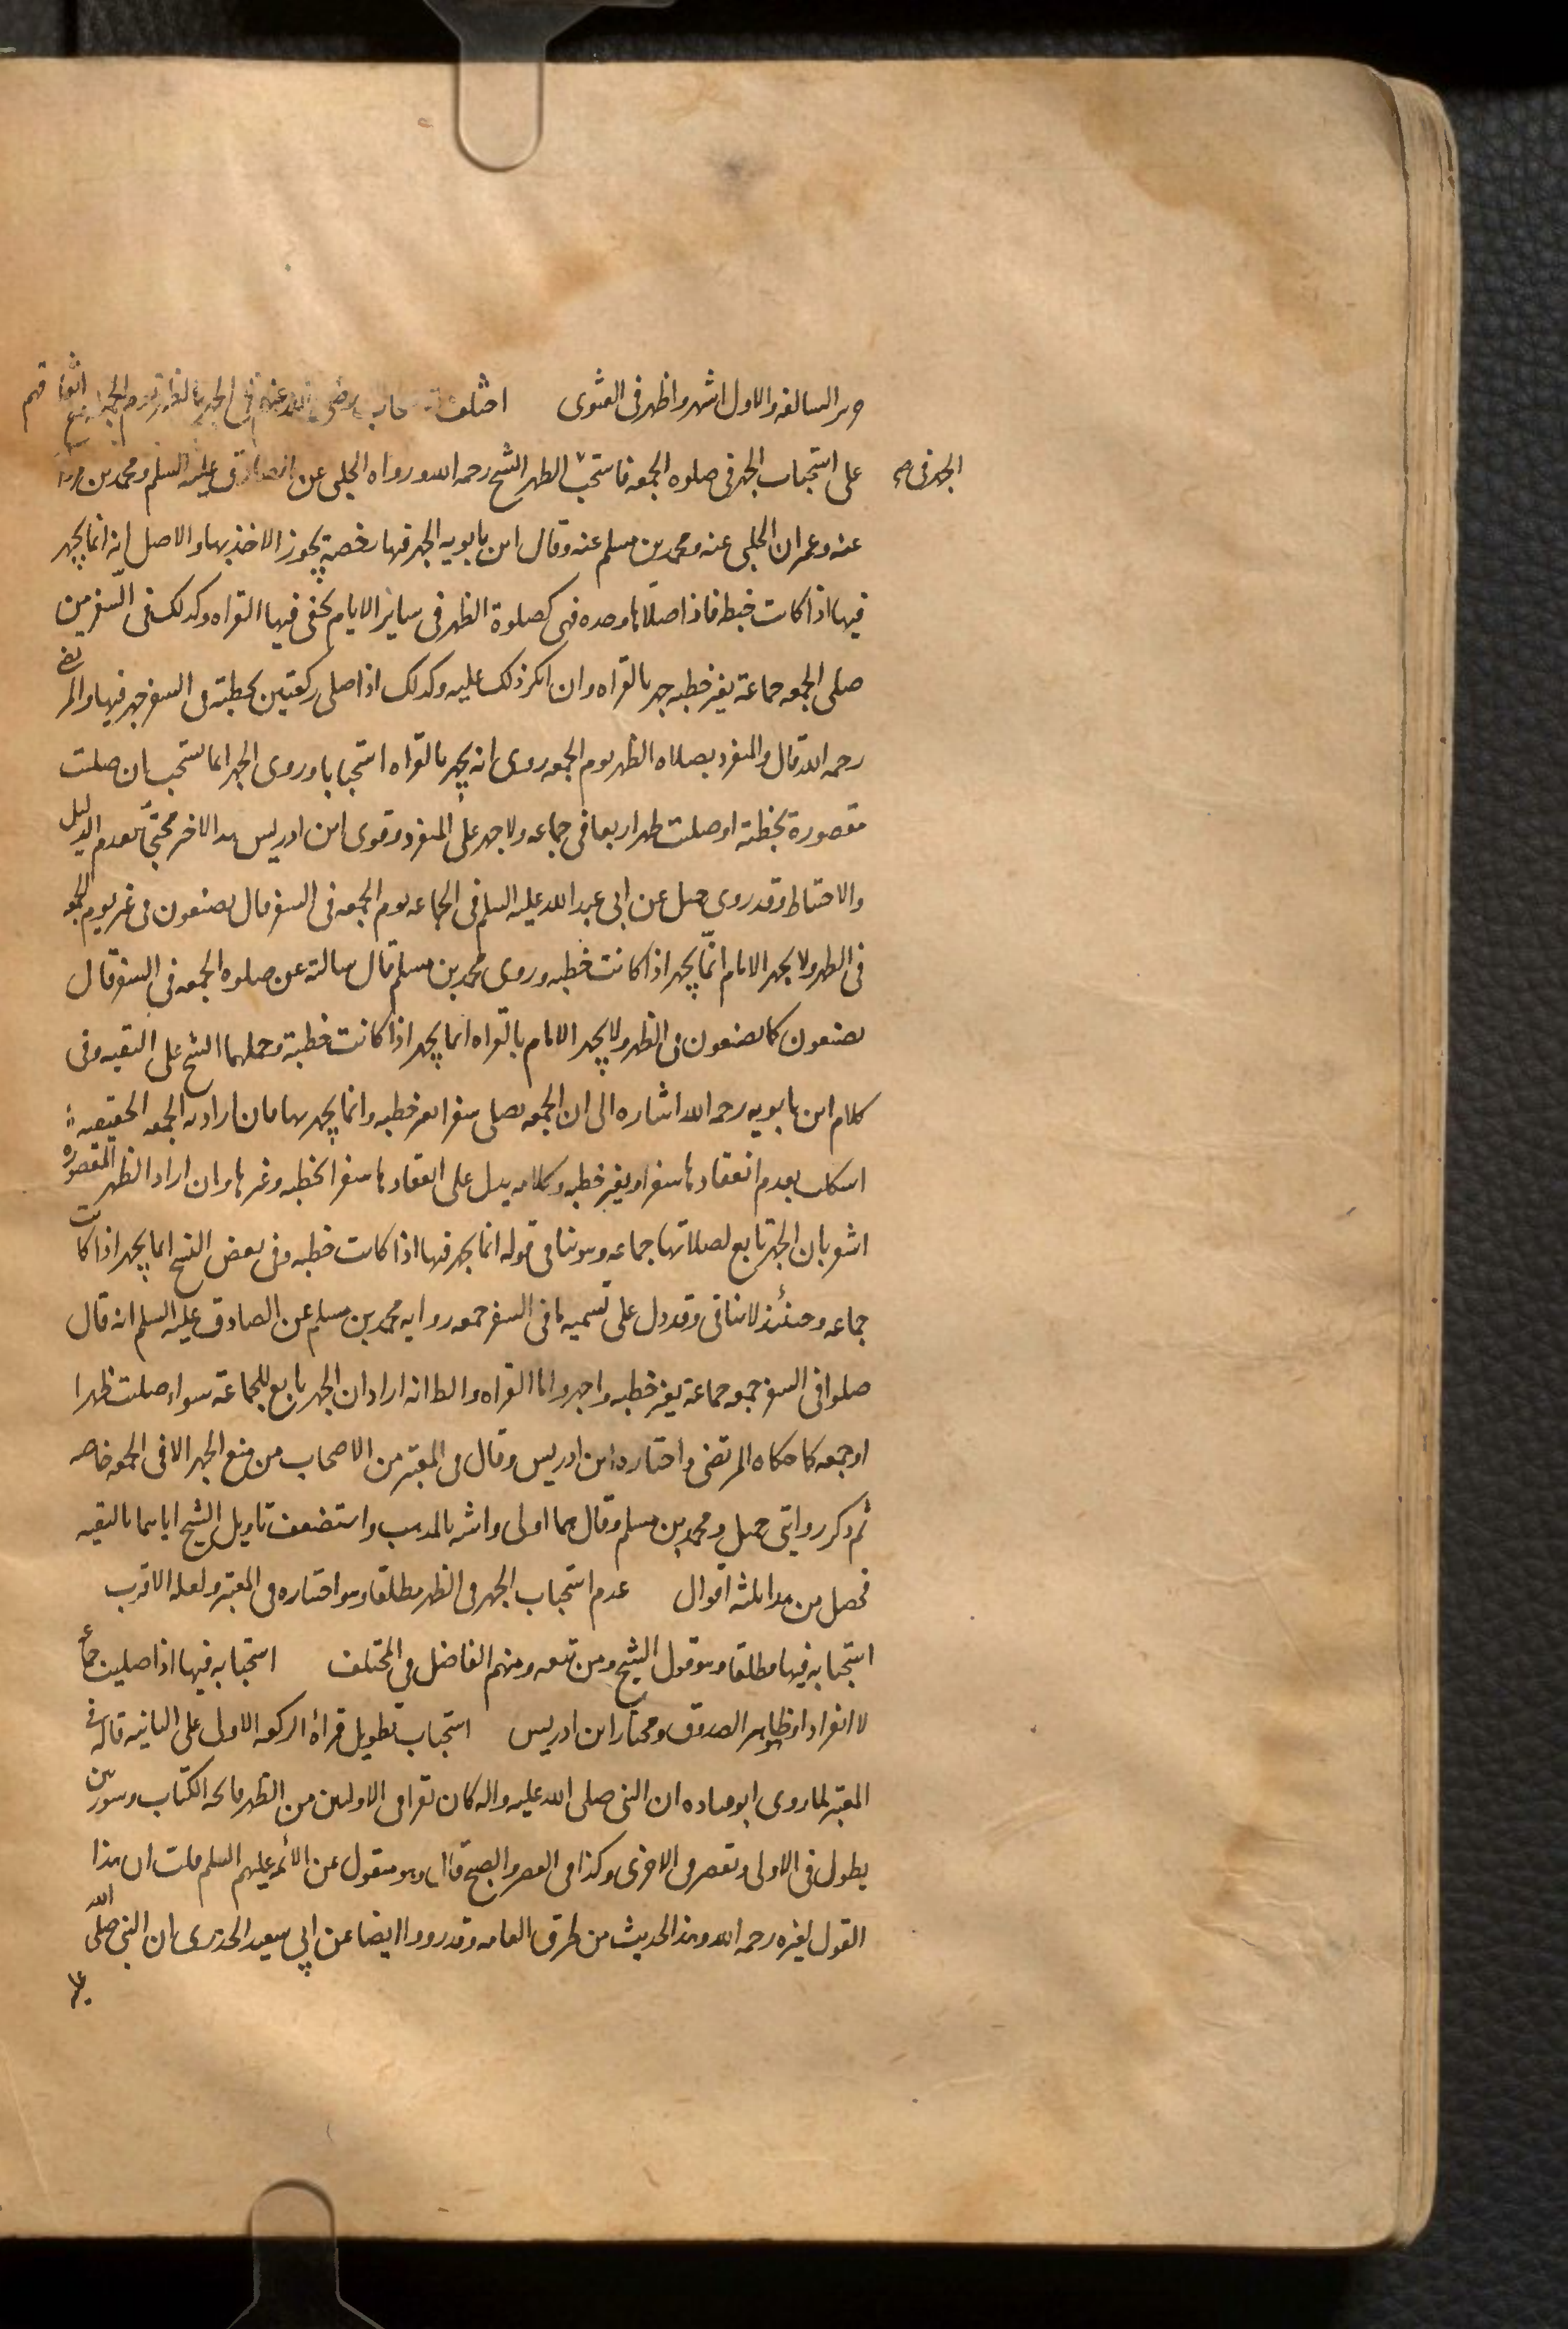 السالفه والاول اشهر واظهر فى الفتوى اختلف الاصحاب رضى الله عنهم فى الجهر بالظهر يوم الجمعه مع اتفاقهم
الجهر فى
على استحباب الجهر فى صلوه الجمعه فاستحب الظهر الشيخ رحمه الله ورواه الحلبى عن الصادق عليه السلم ومحمد بن مروان
عنه وعمران الحلبى عنه ومحمد بن مسلم عنه وقال ابن بابويه الجهر فيها رخصة يجوز الاخذ بها والاصل انه انما يجهر
فيها اذا كانت خطبه فاذا صلاها وحده فهى كصلوة الظهر فى ساير الايام يخفى فيها القراه وكذلك فى السفر من
صلى الجمعه جماعة بغير خطبه جهر بالقراه وان انكر ذلك عليه وكذلك اذا صلى ركعتين بخطبته فى السفر جهر فيها والمرتضى
رحمه الله قال والمنفرد بصلاه الظهر يوم الجمعه روى انه يجهر بالقراه استحبابا وروى الجهر انما يستحب ان صليت
مقصورة بخطبة او صليت ظهرا اربعا فى جماعه ولا جهر على المنفرد وقوى ابن ادريس هذا الاخر محتجا بعدم الدليل
والاحتياط وقد روى جميل عن ابى عبد الله عليه السلم فى الجماعه يوم الجمعه فى السفر قال يصنعون فى غير يوم الجمعه
فى الظهر ولا يجهر الامام انما يجهر اذا كانت خطبه وروى محمد بن مسلم قال سالته عن صلوه الجمعه فى السفر قال
يصنعون كما يصنعون فى الظهر ولا يجهر الامام بالقراه انما يجهر اذا كانت خطبة وحملهما الشيخ على التقيه وفى
كلام ابن بابويه رحمه الله اشاره الى ان الجمعه تصلى سفرا بغير خطبه وانما يجهر بها فان اراد به الجمعه الحقيقيه
اشكل بعدم انعقادها سفرا وبغير خطبه وكلامه يدل على انعقادها سفرا بخطبه وغيرها وان اراد الظهر المقصوره
اشعر بان الجهر تابع لصلاتها جماعه وهو ينافى قوله انما يجهر فيها اذا كانت خطبه وفى بعض النسخ انما يجهر اذا كانت
جماعه وحينئذ لا ينافى وقد دل على تسميتها فى السفر جمعه روايه محمد بن مسلم عن الصادق عليه السلم انه قال
صلوا فى السفر جمعه جماعة بغير خطبه واجهروا بالقراه والظ انه اراد ان الجهر تابع للجماعة سواء صليت ظهرا
او جمعه كما حكاه المرتضى واختاره ابن ادريس وقال فى المعتبر من الاصحاب من منع الجهر الا فى الجمعه خاصه
ثم ذكر روايتى جميل ومحمد بن مسلم وقال هما اولى واشبه بالمذهب واستضعف تاويل الشيخ اياهما بالتقيه
فحصل من هذا ثلثه اقوال عدم استحباب الجهر فى الظهر مطلقا وهو اختياره فى المعتبر ولعله الاقرب
استحبابه فيها مطلقا وهو قول الشيخ ومن تبعه ومنهم الفاضل فى المختلف استحبابه فيها اذا صليت جماعه
لا انفرادا وهو ظاهر الصدوق ومختار ابن ادريس استحباب تطويل قراءة الركعه الاولى على الثانيه قاله فى
المعتبر لما روى ابو قتاده ان النبى صلى الله عليه واله كان يقرا فى الاوليين من الظهر فاتحه الكتاب وسورتين
يطول فى الاولى وتقصر فى الاخرى وكذا فى العصر والصبح قال وهو منقول عن الائمه عليهم السلم قلت ان هذا
القول لغيره رحمه الله وهذا الحديث من طرق العامه وقد رووا ايضا عن ابى سعيد الخدرى ان النبى صلى الله
عليه